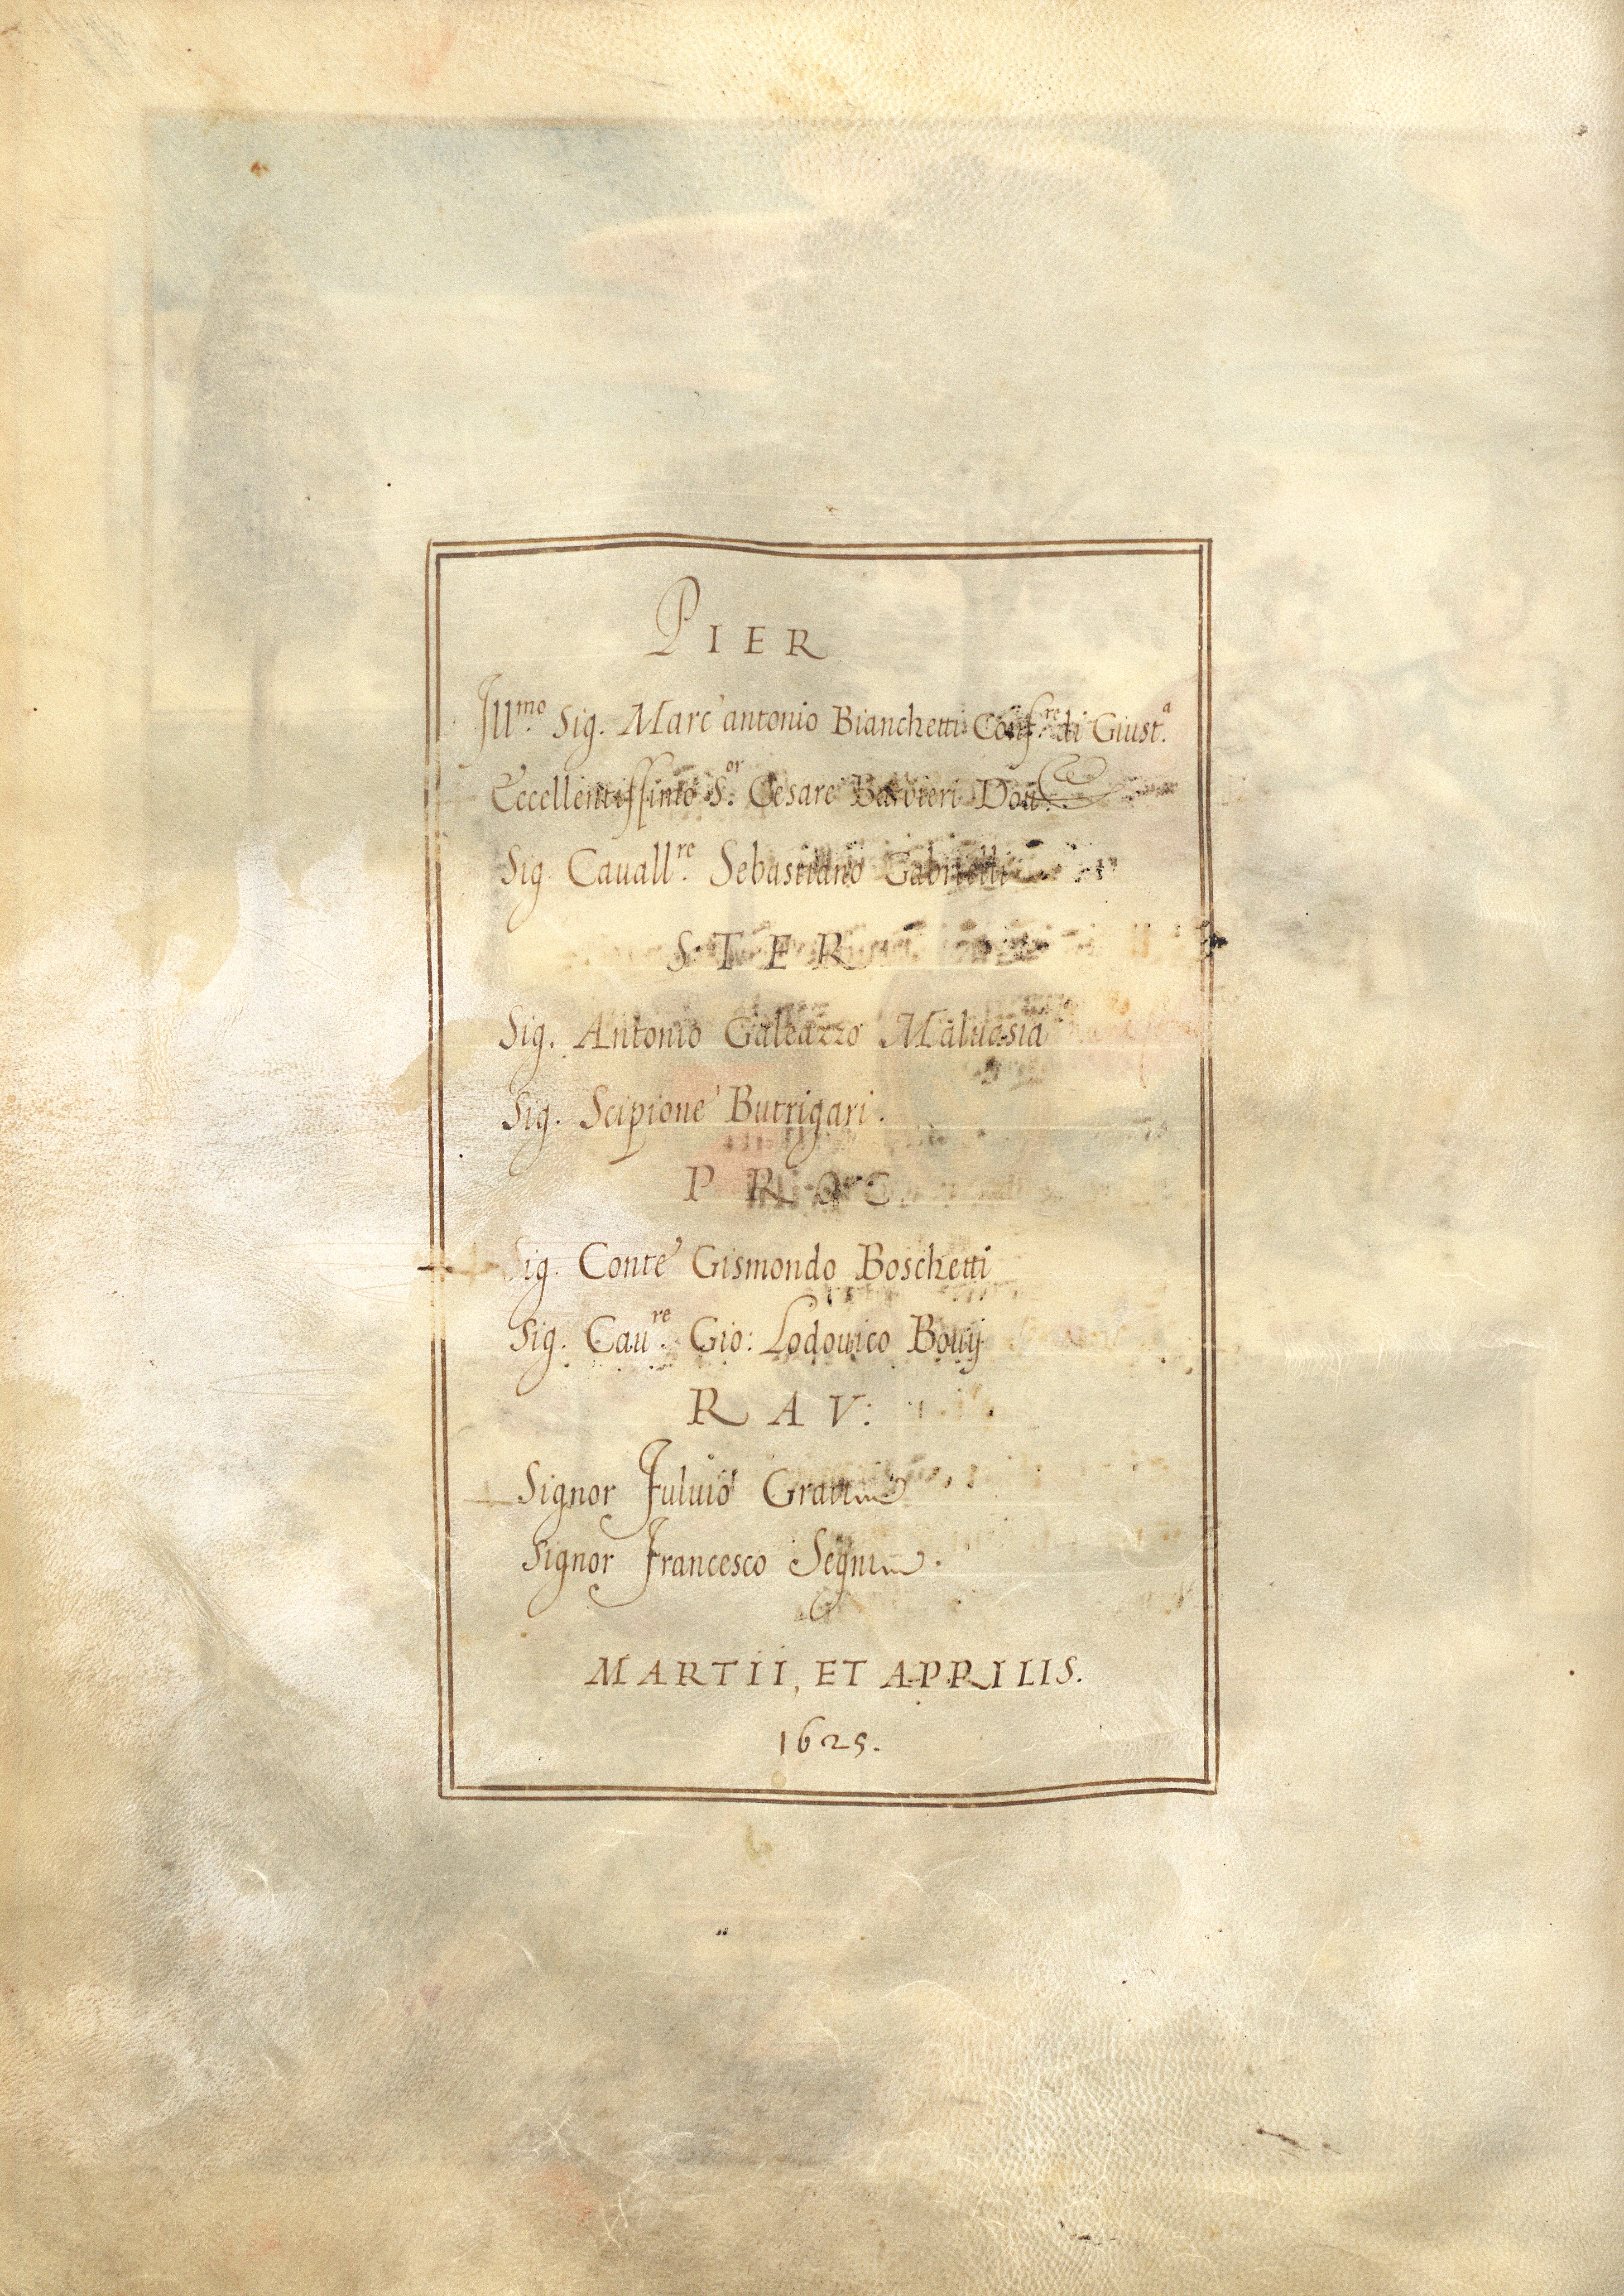 PIER
Ill.mo Sig. Marc'antonio Bianchetti Conf.re di Giust.a
Eccellentissimo S.or Cesare Barbieri Dott.
Sig. Cauall.re Sebastiano Gabrielli
STER
Sig. Antonio Galeazzo Maluasia
Sig. Scipione Butrigari.
PROC
Sig. Conte Gismondo Boschetti
Sig. Cau.re Gio: Lodouico Bouij
RAV:
Signor Fuluio Grati
Signor Francesco Segni.
MARTII, ET APRILIS.
1625.